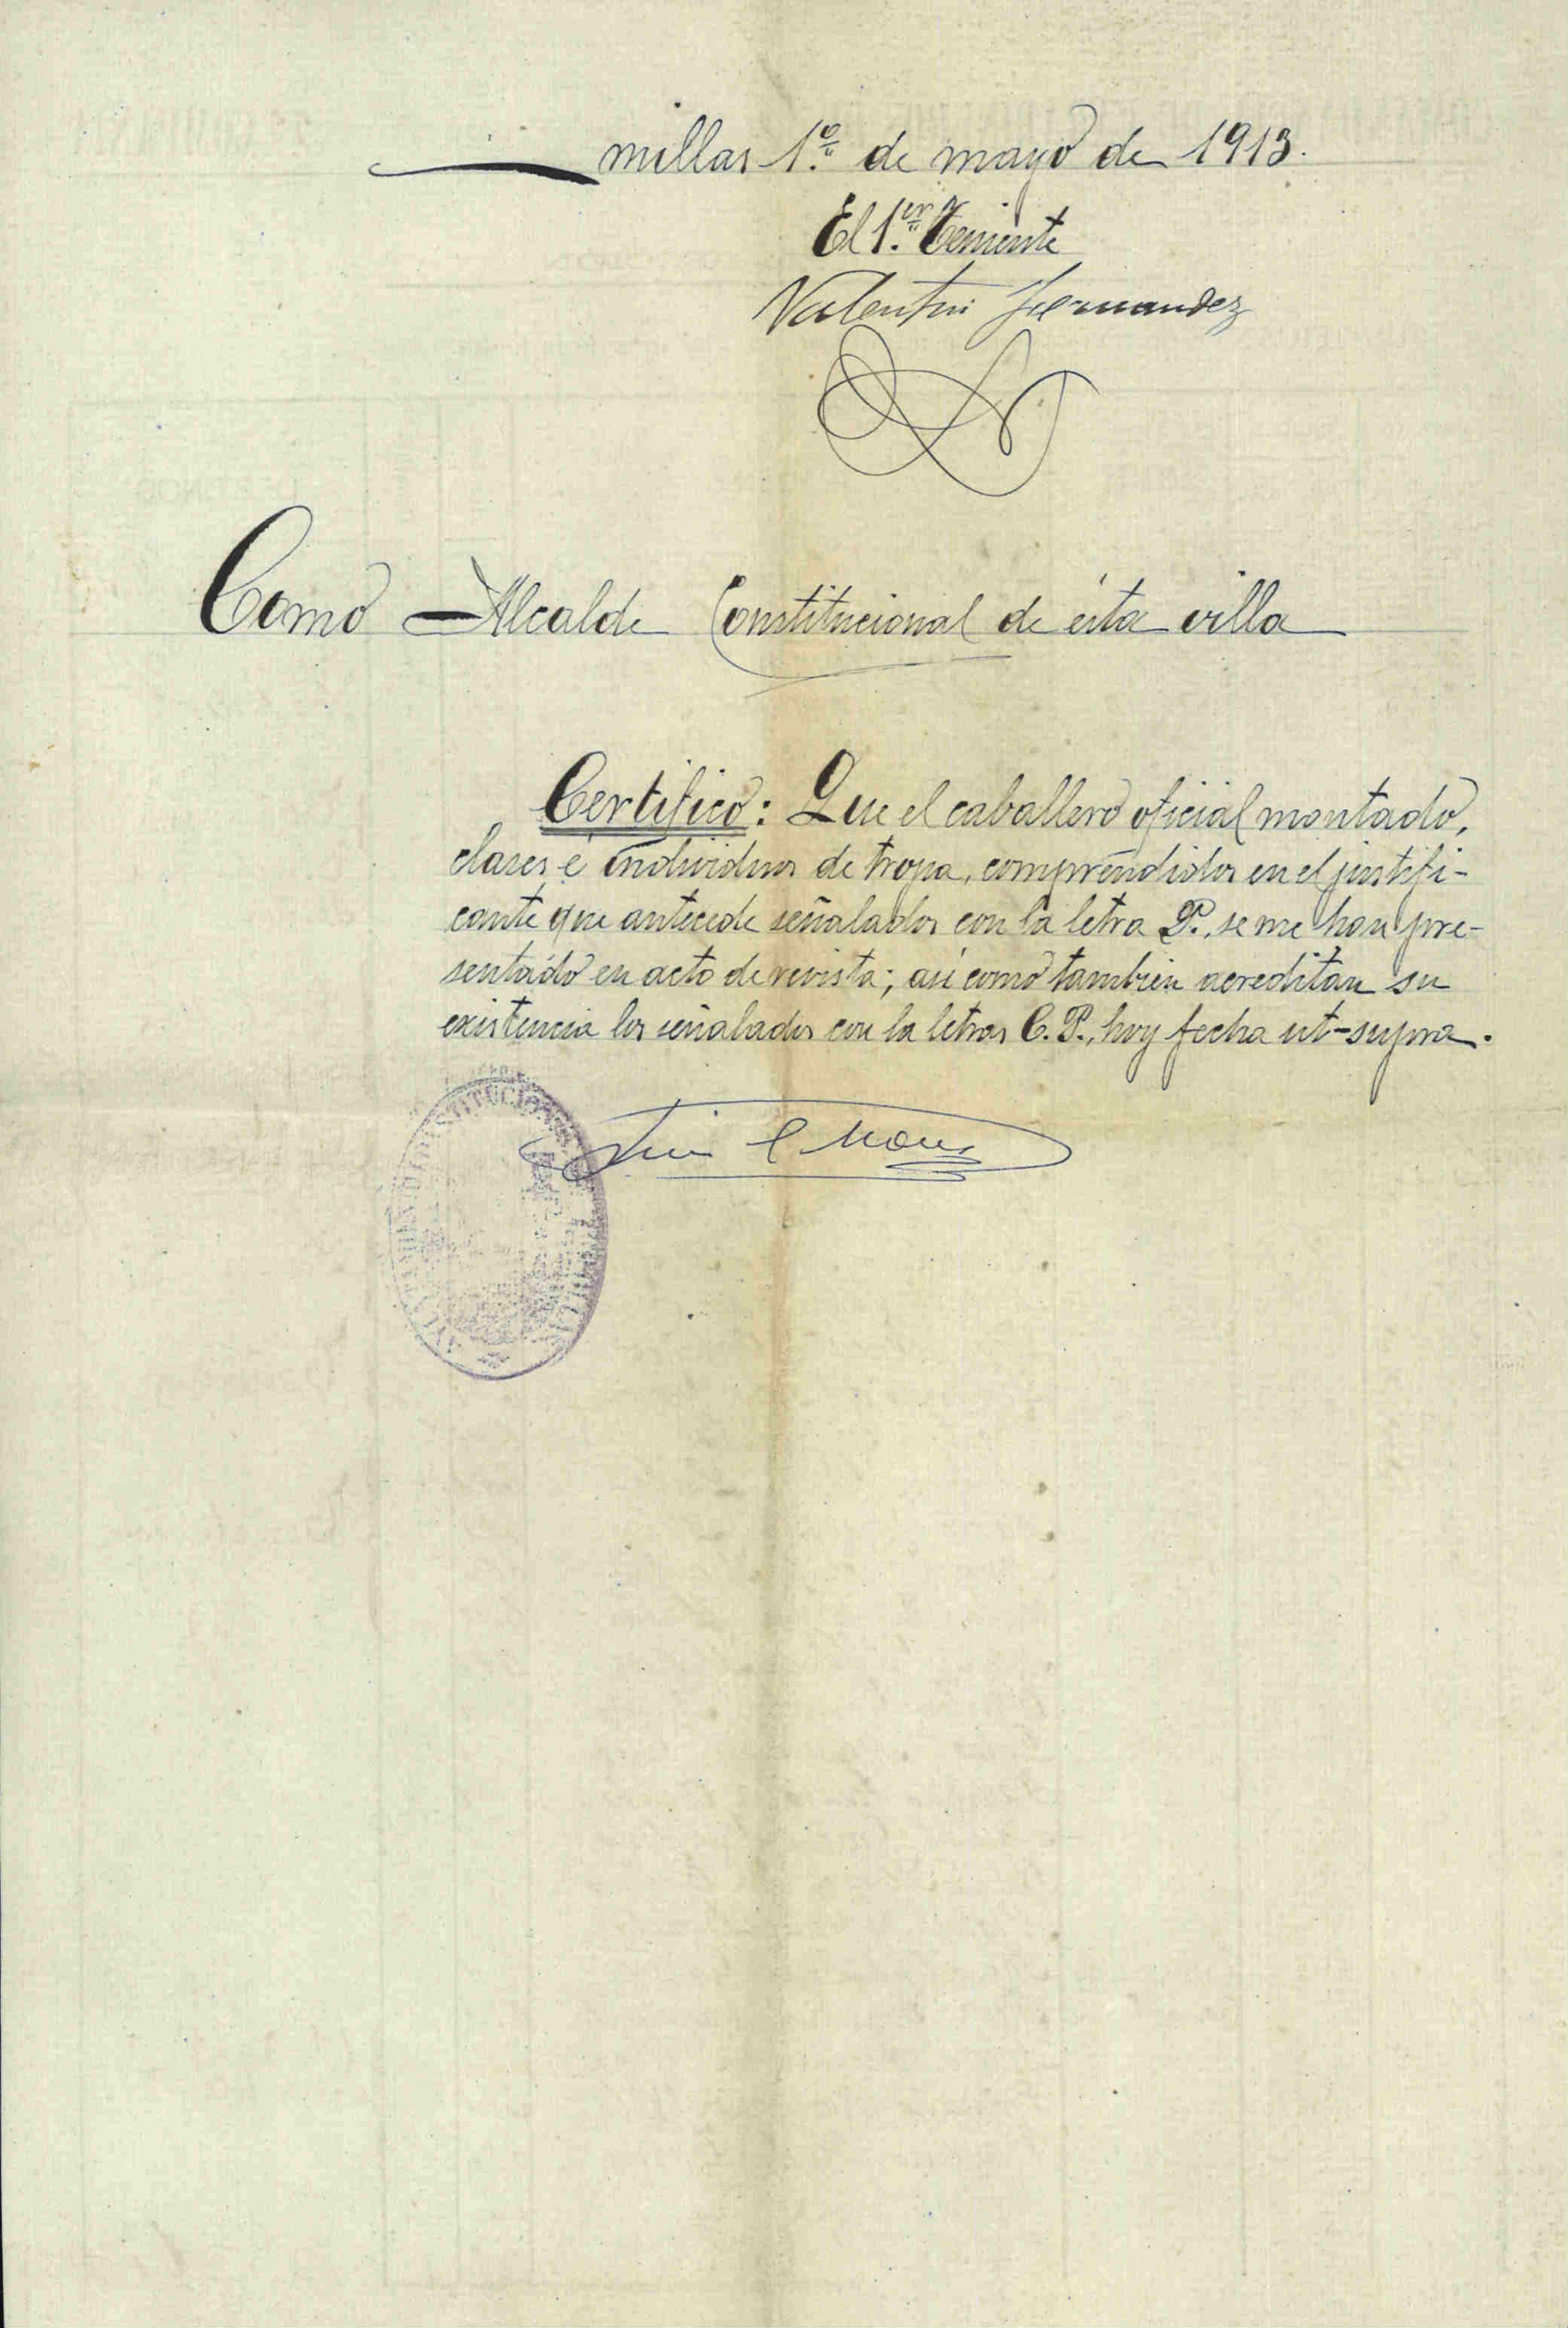 millas 1º de mayo de 1913.
El 1er Teniente
Valentin Hernandez
Como Alcalde Constitucional de ésta villa
Certifico: Que el caballero oficial montado,
clases e individuos de tropa, comprendidos en el justifi-
cante que antecede señalados con la letra P., se me han pre-
sentado en acto de revista; asi como tambien acreditan su
existencia los señalados con la letras C. P., hoy fecha ut-supra.